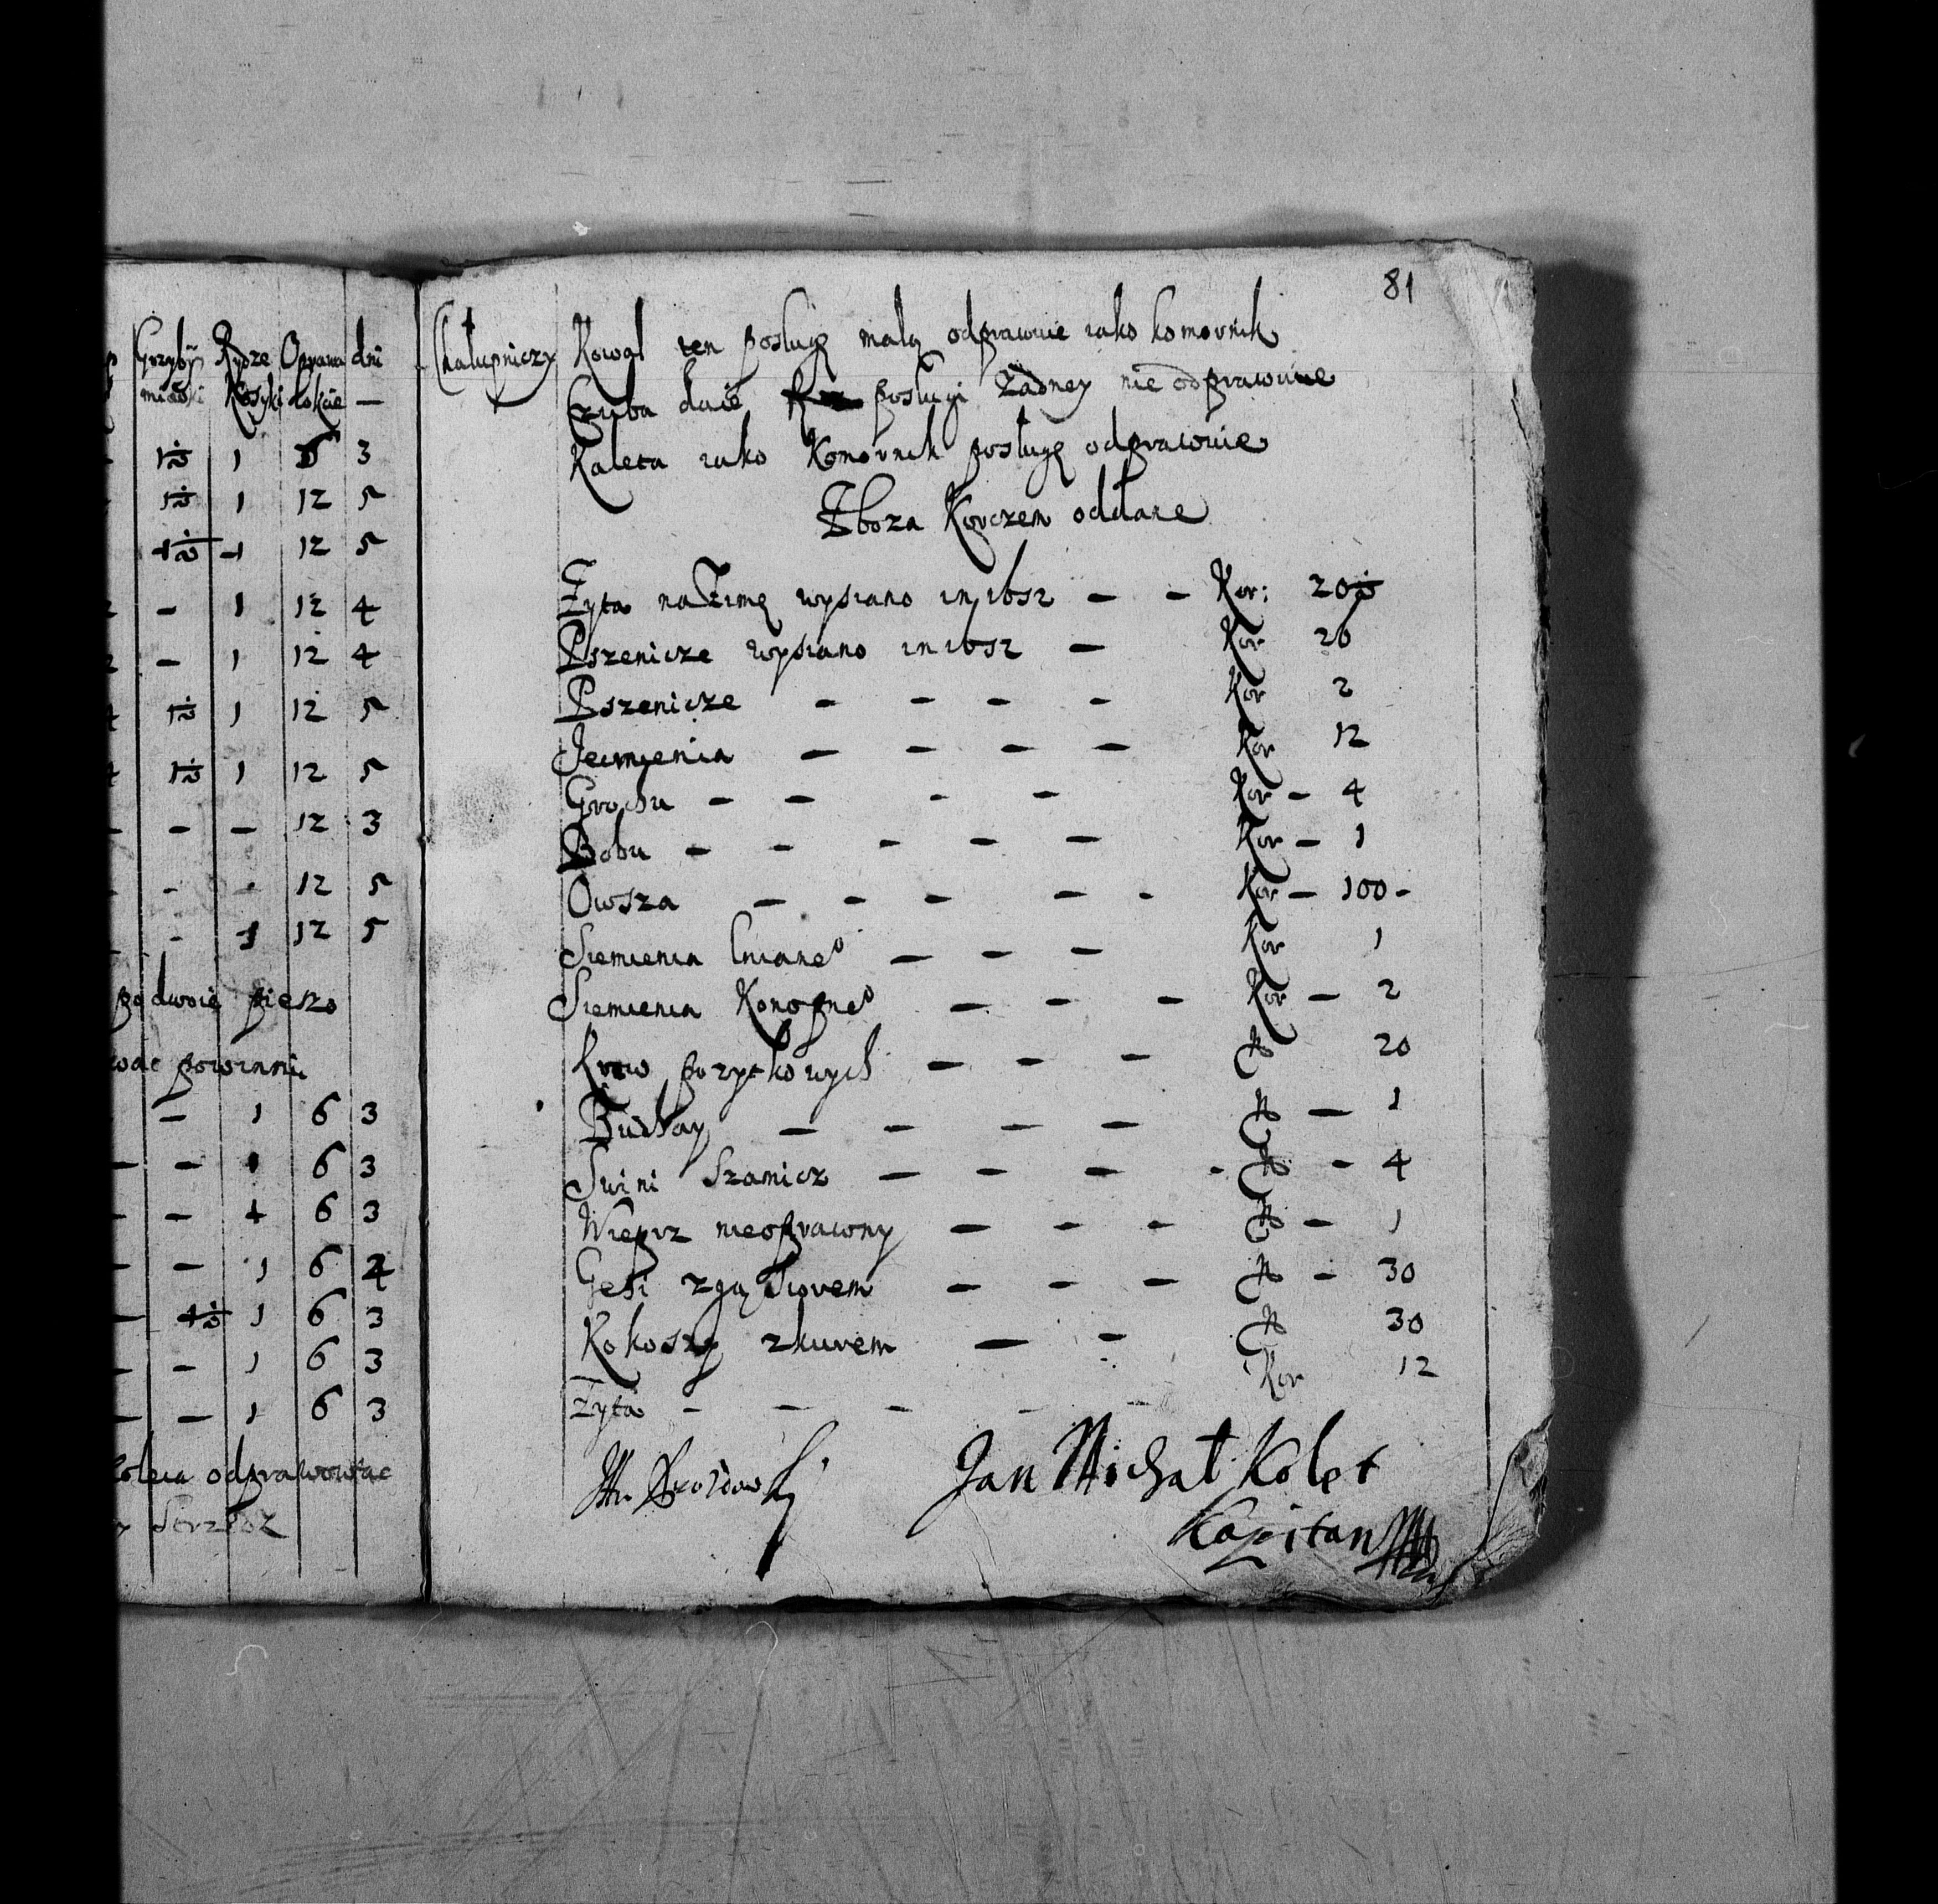 Grzyby Rydze Oprawa dni
miarki Kosyki łokcie —
1½ 1 6 3
1½ 1 12 5
1½ 1 12 5
— 1 12 4
— 1 12 4
1½ 1 12 5
1½ 1 12 5
— — — 12 3
- - - 12 5
- - 1 12 5
po dwoie pieszo
powinni
— 1 6 3
— — 1 6 3
— — 1 6 3
— — 1 6 4
— 1½ 1 6 3
— — 1 6 3
— — 1 6 3
odprawowac
81
Chałupniczy
Kowal ten posługę małą odprawuie iako komornik
Czuba daie posługi żadney nie odprawuie
Kaleta iako Komornik posługę odprawuie
Zboża Korczem oddaie
Zyta na Zimę wysiano in 1652 — — Kor: 20½
Pszenicze wysiano in 1652 — Kor 26
Pszenicze — — — — Kor 2
Jecmienia — — — — Kor 12
Grochu — — — — Kor — 4
Bobu — — — — — Kor — 1
Owsza — — — — - Kor — 100 -
Siemienia lniane° — — — Kor 1
Siemienia Konopne° — — — Kor — 2
Krow pozytkowych — — — N 20
Buchay — — — — N — 1
Swini Szamicz — — — - N - 4
Wieprz nieoprawny — — — N — 1
Gesi z gąsiorem — — — N — 30
Kokoszy z kurem — — N 30
Zyta — — — - - Kor 12
Jan Michał Kolet
Kapitan